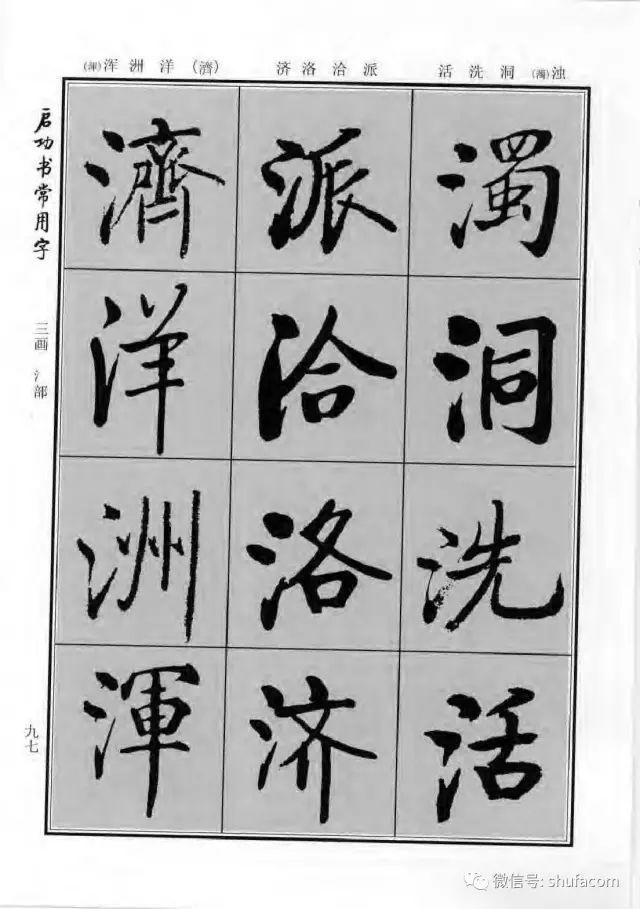 浊(濁)洞洗活 派洽洛济 (濟)洋洲浑(渾)
濁洞洗活
派洽洛济
濟洋洲渾
启功书常用字
三画 氵部
九七
微信号: shufacom